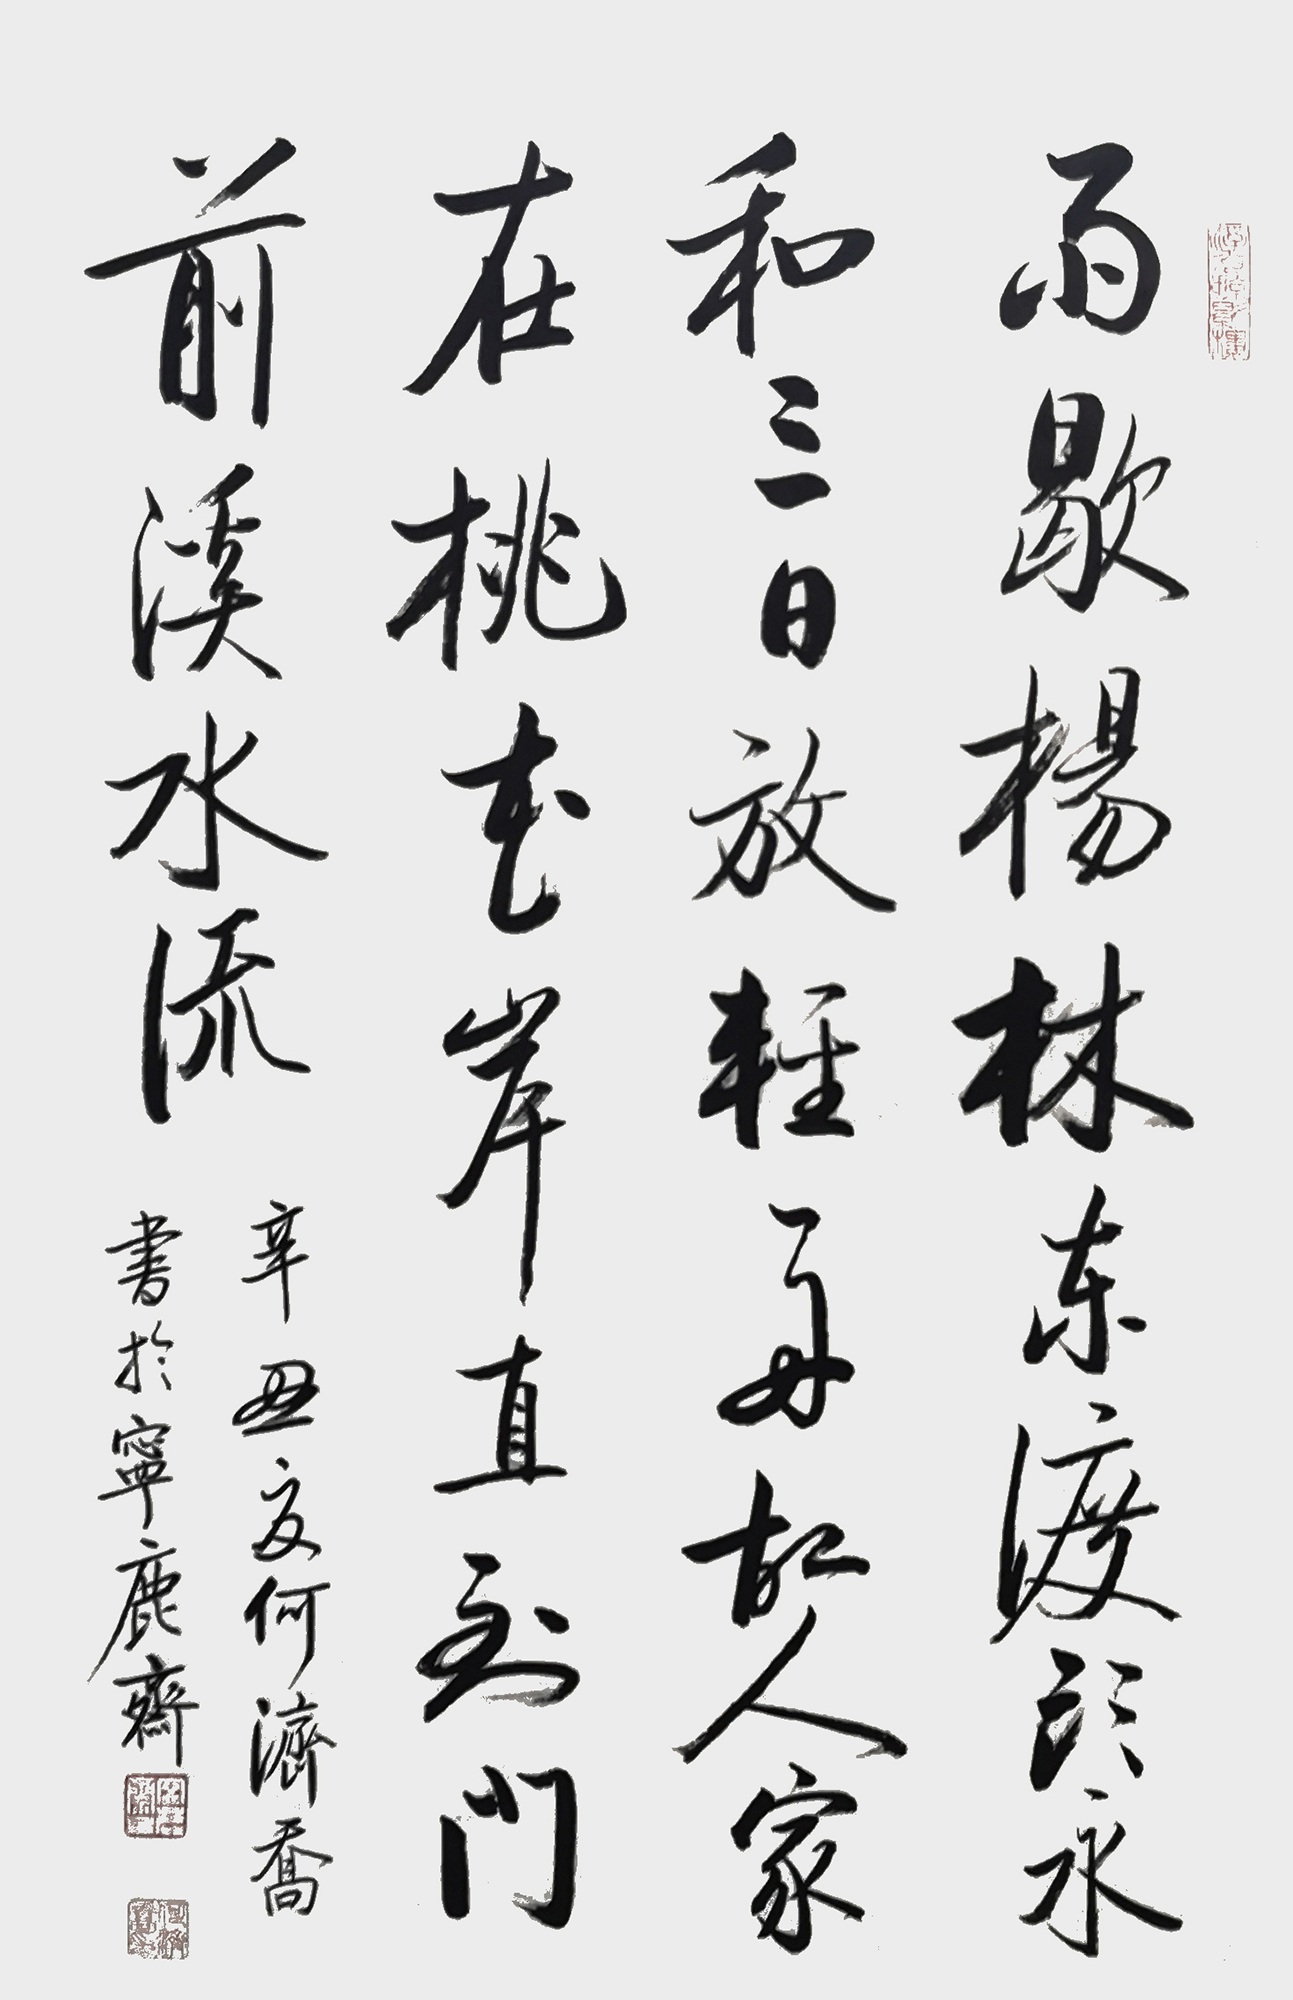 雨歇楊林东渡頭永
和三日放輕舟故人家
在桃花岸直到門
前溪水流
辛丑夏何濟喬
書於寧鹿齋